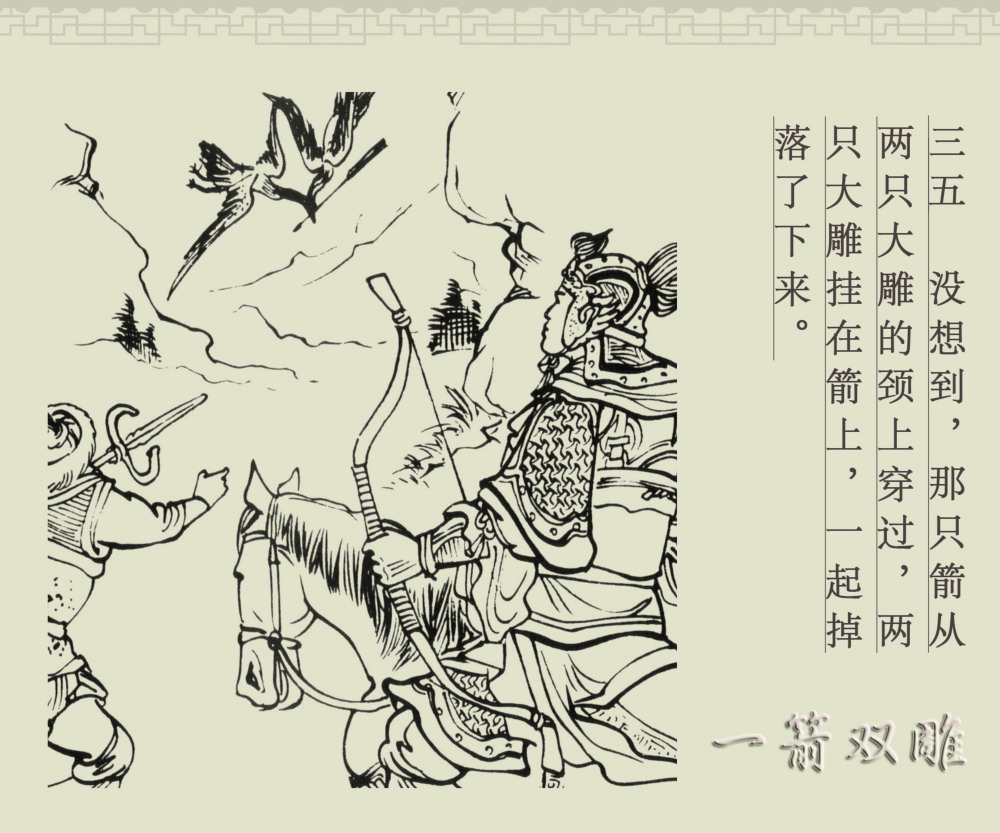 三五　没想到，那只箭从
两只大雕的颈上穿过，两
只大雕挂在箭上，一起掉
落了下来。
一箭双雕